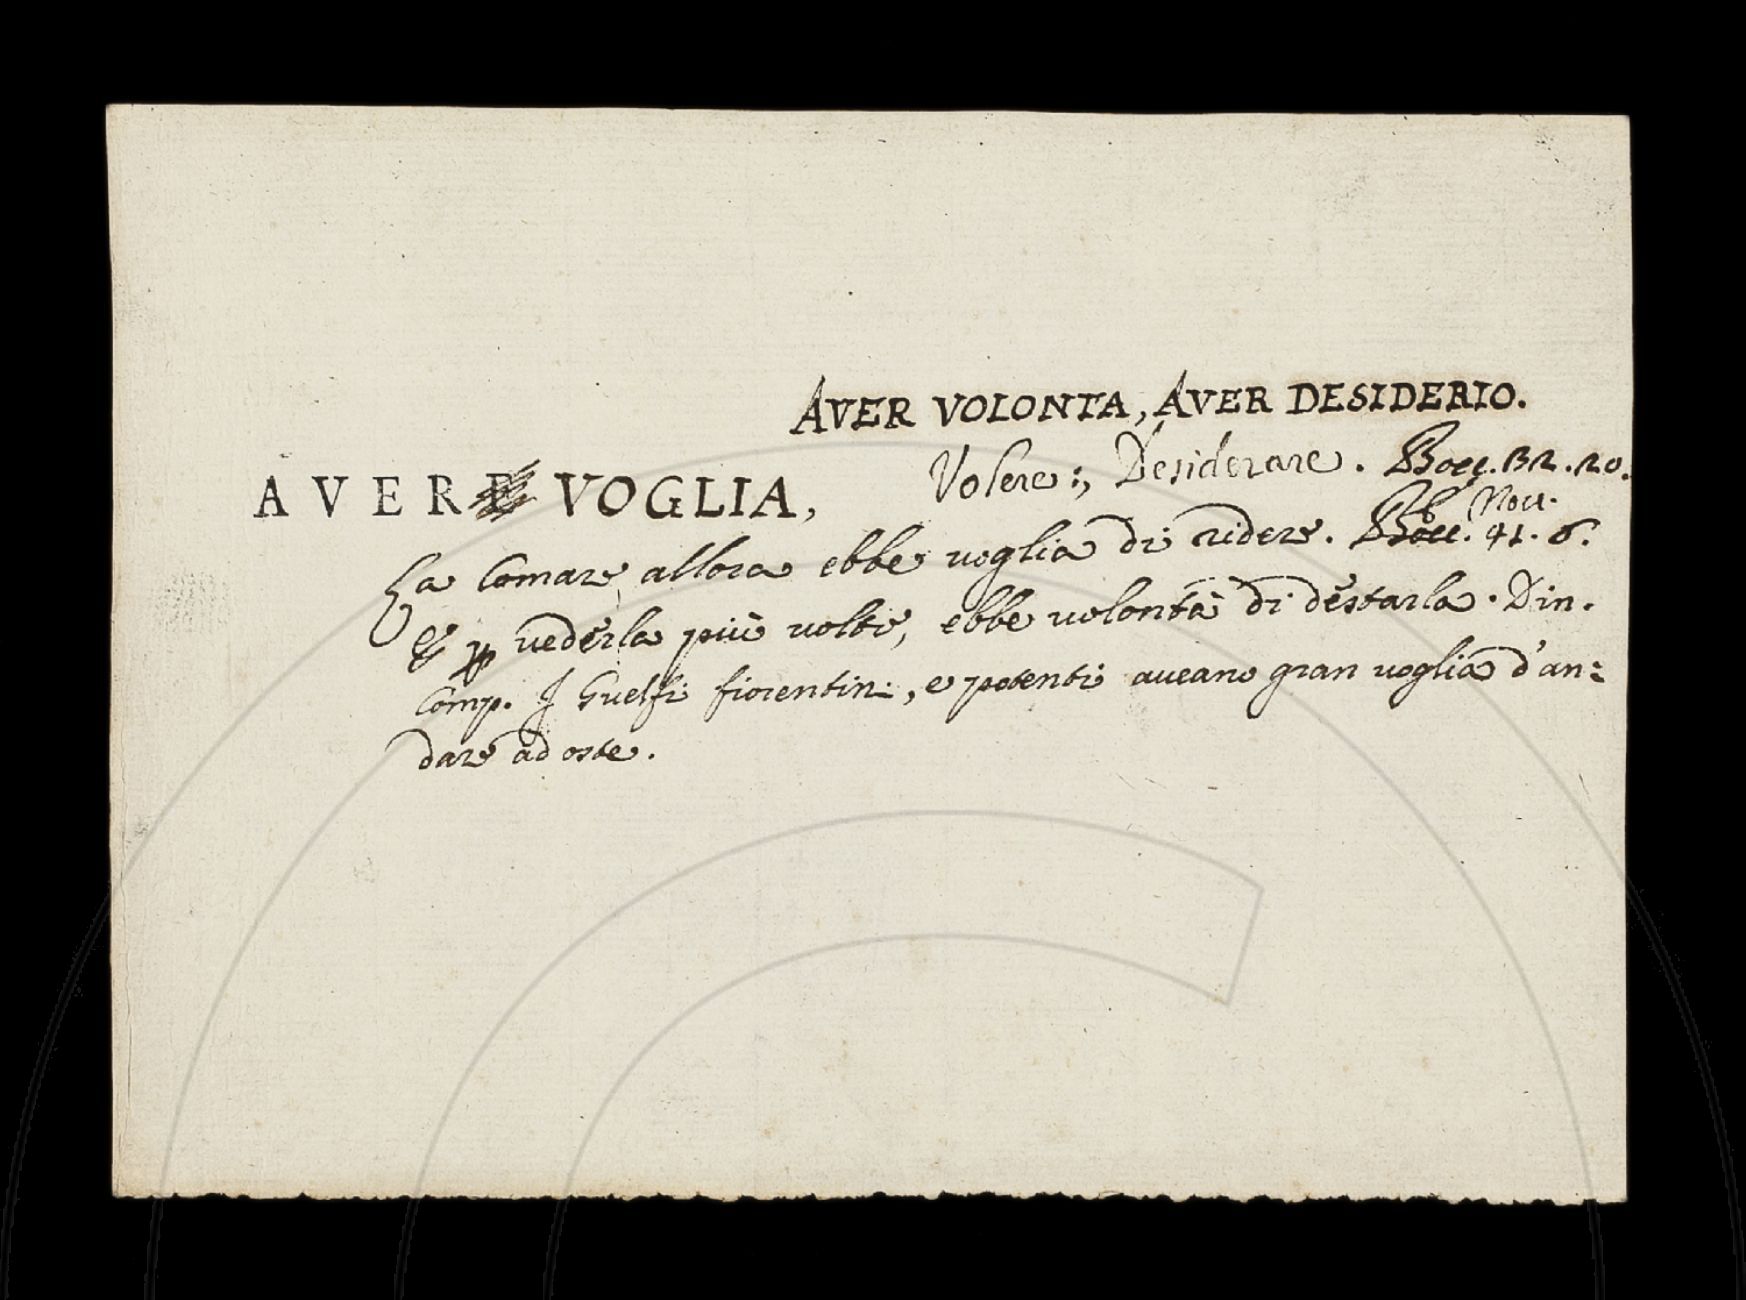 AVER VOLONTA, AVER DESIDERIO.
AVER VOGLIA, Volere:, Desiderare. Bocc. 32. 20.
La Comare allora ebbe voglia di ridere. Bocc. Nov. 41. 6.
E p vederla più volte, ebbe volontà di destarla. Din.
Comp. I Guelfi fiorentini, e potenti aveano gran voglia d'an:
dare ad oste.